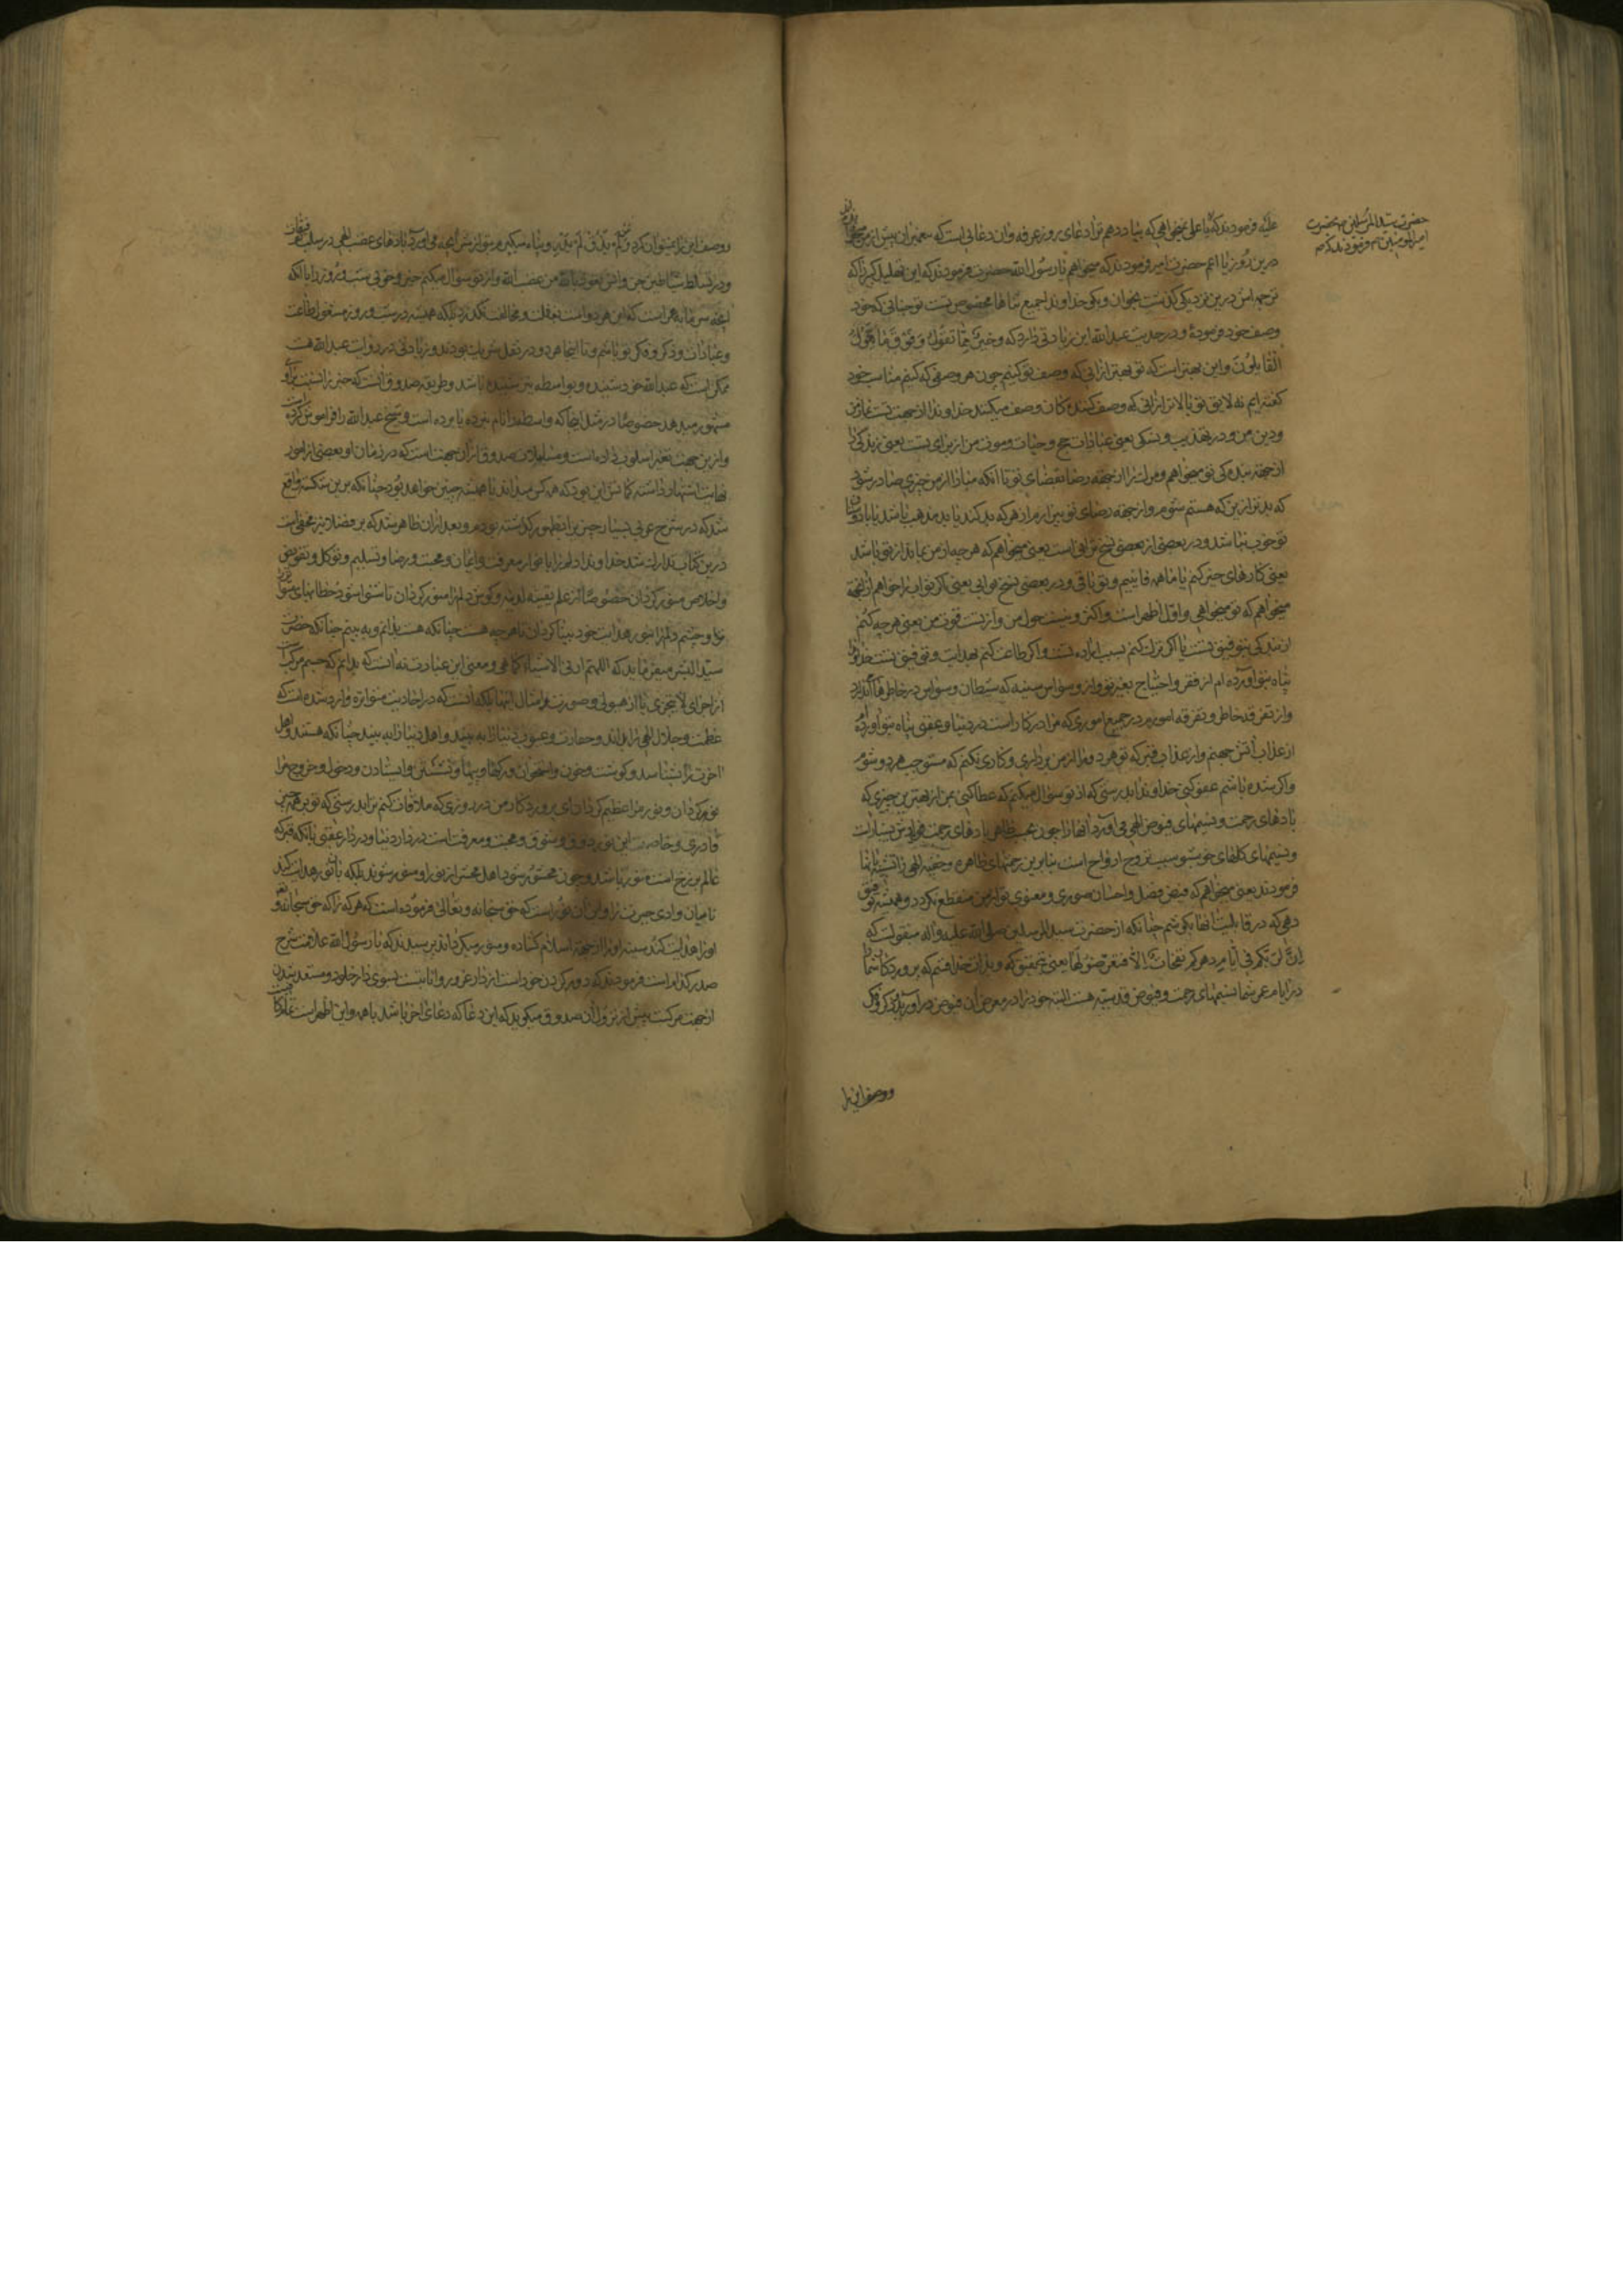 عليه فرمودند كه يا على نميخواهى كه بياد دهم ترا دعاى روز عرفه وآن دعائى است كه پيغمبران پيش از من
درين روز يا اعم حضرت امير فرمودند كه ميخواهم يا رسول الله حضرت فرمودند كه اين تهليل كبير را كه
ترجمه اش درين نزديكى گذشت بخوان وبگو خداوندا جميع ثناها مخصوص تست توچنانى كه خود
وصف خود فرمودهٔ ودر حديث عبد الله اين زيادتى دارد كه وخيرٌ مِمّا تقول وفوق ما يقول
القائلون واين بهتر است كه تو بهتر از انى كه وصف تو كنيم چون هر وصفى كه كنيم مناسب خود
گفته ايم نه لايق تو يا بالاتر از انى كه وصف كنندگان وصف ميكنند خداوندا از جهت تست نماز من
ودين من ودر تهذيب ونسكى يعنى عبادات حج وحيات وموت من از براى تست يعنى زندگى را
از جهة بندگى تو ميخواهم ومرگ را از جهة رضا بقضاى تو يا آنكه مبادا از من چيزى صادر شود
كه بدتر ازين كه هستم شوم واز جهة رضاى تو بيزارم از هر كه بد كند يا بد مذهب باشد يا با دوستان
تو خوب نباشد ودر بعضى از بعضى نسخ تراثى است يعنى ميخواهم كه هر چه از من بماند از تو باشد
يعنى كارهاى خير كنم يا ما همه فانييم وتو باقى ودر بعضى نسخ ثوابى يعنى اگر ثواب را خواهم از جهة
ميخواهم كه تو ميخواهى واول اظهر است واكثر ونيست حول من واز تست قوت من يعنى هر چه كنم
از بندگى بتوفيق تست يا اگر ترك كنم بسبب اراده تست واگر طاعت كنم بهدايت وتوفيق تست خداوندا
پناه بتو آورده ام از فقر واحتياج بغير تو واز وسواس سينه كه شيطان وسواس در خاطرها اندازد
واز تفرقه خاطر وتفرقه امورم در جميع امورى كه مرا در كار است در دنيا وعقبى پناه بتو آورده ام
از عذاب آتش جهنم واز عذاب قبر كه تو هر دو را از من بردارى وكارى نكنم كه مستوجب هر دو شوم
واگر شده باشم عفو كنى خداوندا بدرستى كه از تو سؤال ميكنم كه عطا كنى بمن از بهترين چيزى كه
بادهاى رحمت ونسيمهاى فيوض الهى مى آورد انها را چون بحسب ظاهر بادهاى رحمت
ونسيمهاى گلهاى خوشبو سبب تروح ارواح است بنا برين رحمتهاى ظاهره وخفيه الهى را تشبيه بانها
فرمودند يعنى ميخواهم كه فيض فضل واحسان صورى ومعنوى تو از من منقطع نگردد وهميشه توفيق
دهى كه در قابليت انها بكوشم چنانكه از حضرت سيد المرسلين صلى الله عليه وآله منقولست كه
اِنَّ لِربّكم فى ايام دهركم نفحات الا فتعرّضوا لها يعنى بتحقيق كه وبدان خدا قسم كه پروردگار شما را
در ايام عمر شما نسيمهاى رحمت وفيوض قدسيه هست البته خود را در معرض آن فيوض در آوريد بذكر وفكر
حضرت سيد المرسلين بحضرت
امير المؤمنين فرمودند كه
ووصف اين را
ووصف اين را نميتوان كرد وپناه ميگيرم بتو از شر آنچه مى آورد بادهاى عضب الهى در سلب توفيقات
ودر تسلط شياطين جن وانس نعوذ بالله من غضب الله واز تو سؤال ميكنم خير وخوبى شب وروز را با آنكه
آنچه سرمايه عمر است كه اين هر دو است بغفلت ومخالفت نگذرد بلكه هميشه در شب وروز مشغول طاعت
وعبادات وذكر وفكر تو باشم وتا اينجا هر دو در نقل شريك بودند وزيادتى در روايت عبد الله هست
ممكن است كه عبد الله خود شنيده وبواسطه نيز شنيده باشد وطريقه صدوق آنست كه
مشهور ميدهد خصوصا در مثل اينجا كه واسطه را نام نبرده يا برده است وشيخ عبد الله را فراموش كرده است
وازين جهت تغيير اسلوب داده است ومساهلات صدوق از آن جهت است كه در زمان او بعضى از امور
نهايت اشتهار داشته گمانش اين بود كه همه كس ميداند يا هميشه چنين خواهد بود چنانكه برين شكسته واقع
شد كه در شرح عربى بسيار چيز را بظهور گذاشته بودم وبعد از ان ظاهر شد كه بر فضلا نيز مخفى است
درين كتاب تدارك شد خداوندا دلم را بانوار معرفت وايمان ومحبت ورضا وتسليم وتوكل وتفويض
واخلاص منور گردان خصوصا از علم يقينه لدنيه وگوش دلم را منور گردان تا شنوا شود خطابهاى
ترا وچشم دلم را بنور هدايت خود بينا گردان تا هر چه هست چنانكه هست بدانم وبه بينم چنانكه حضرت
سيد البشر ميفرمايد كه اللهم ارنى الاشياء كما هى ومعنى اين عبارت نه آنست كه بدانم كه جسم مركب است
از اجزاى لا يتجزى يا از هيولى وصورت وامثال اينها بلكه آنست كه در احاديث متواتره وارد شده است كه
عظمت وجلال الهى را بداند وحقارت وعيوب دنيا را به بيند واهل دنيا را به بيند چنانكه هستند واهل
آخرت را بشناسد وگوشت وخون واستخوان ورگها وپيها ونشستن وايستادن ودخول وخروج مرا
نور گردان ونور مرا عظيم گردان اى پروردگار من در روزى كه ملاقات كنم ترا بدرستى كه تو بر همه چيز
قادرى وخاصيت اين نور ذوق وشوق ومحبت ومعرفت است در دار دنيا ودر دار عقبى يا آنكه قبر كه
عالم برزخ است منور باشد وچون محشور شود اهل محشر از نور او منور شوند بلكه بآن نور هدايت كند
تا ميان وادى حيرت را واين آن نور است كه حق سبحانه وتعالى فرموده است كه هر كه را كه حق سبحانه وتعالى
او را هدايت كند سينه او را از جهة اسلام گشاده ومنور ميگرداند پرسيدند كه يا رسول الله علامت شرح
صدر كدام است فرمودند كه دور كردن خود است از دار غرور وانابت بسوى دار خلود ومستعد شدن
از جهت مرگ پيش از نزول آن صدوق ميگويد كه اين دعا كه دعاى آخر باشد با همه واين اظهر است